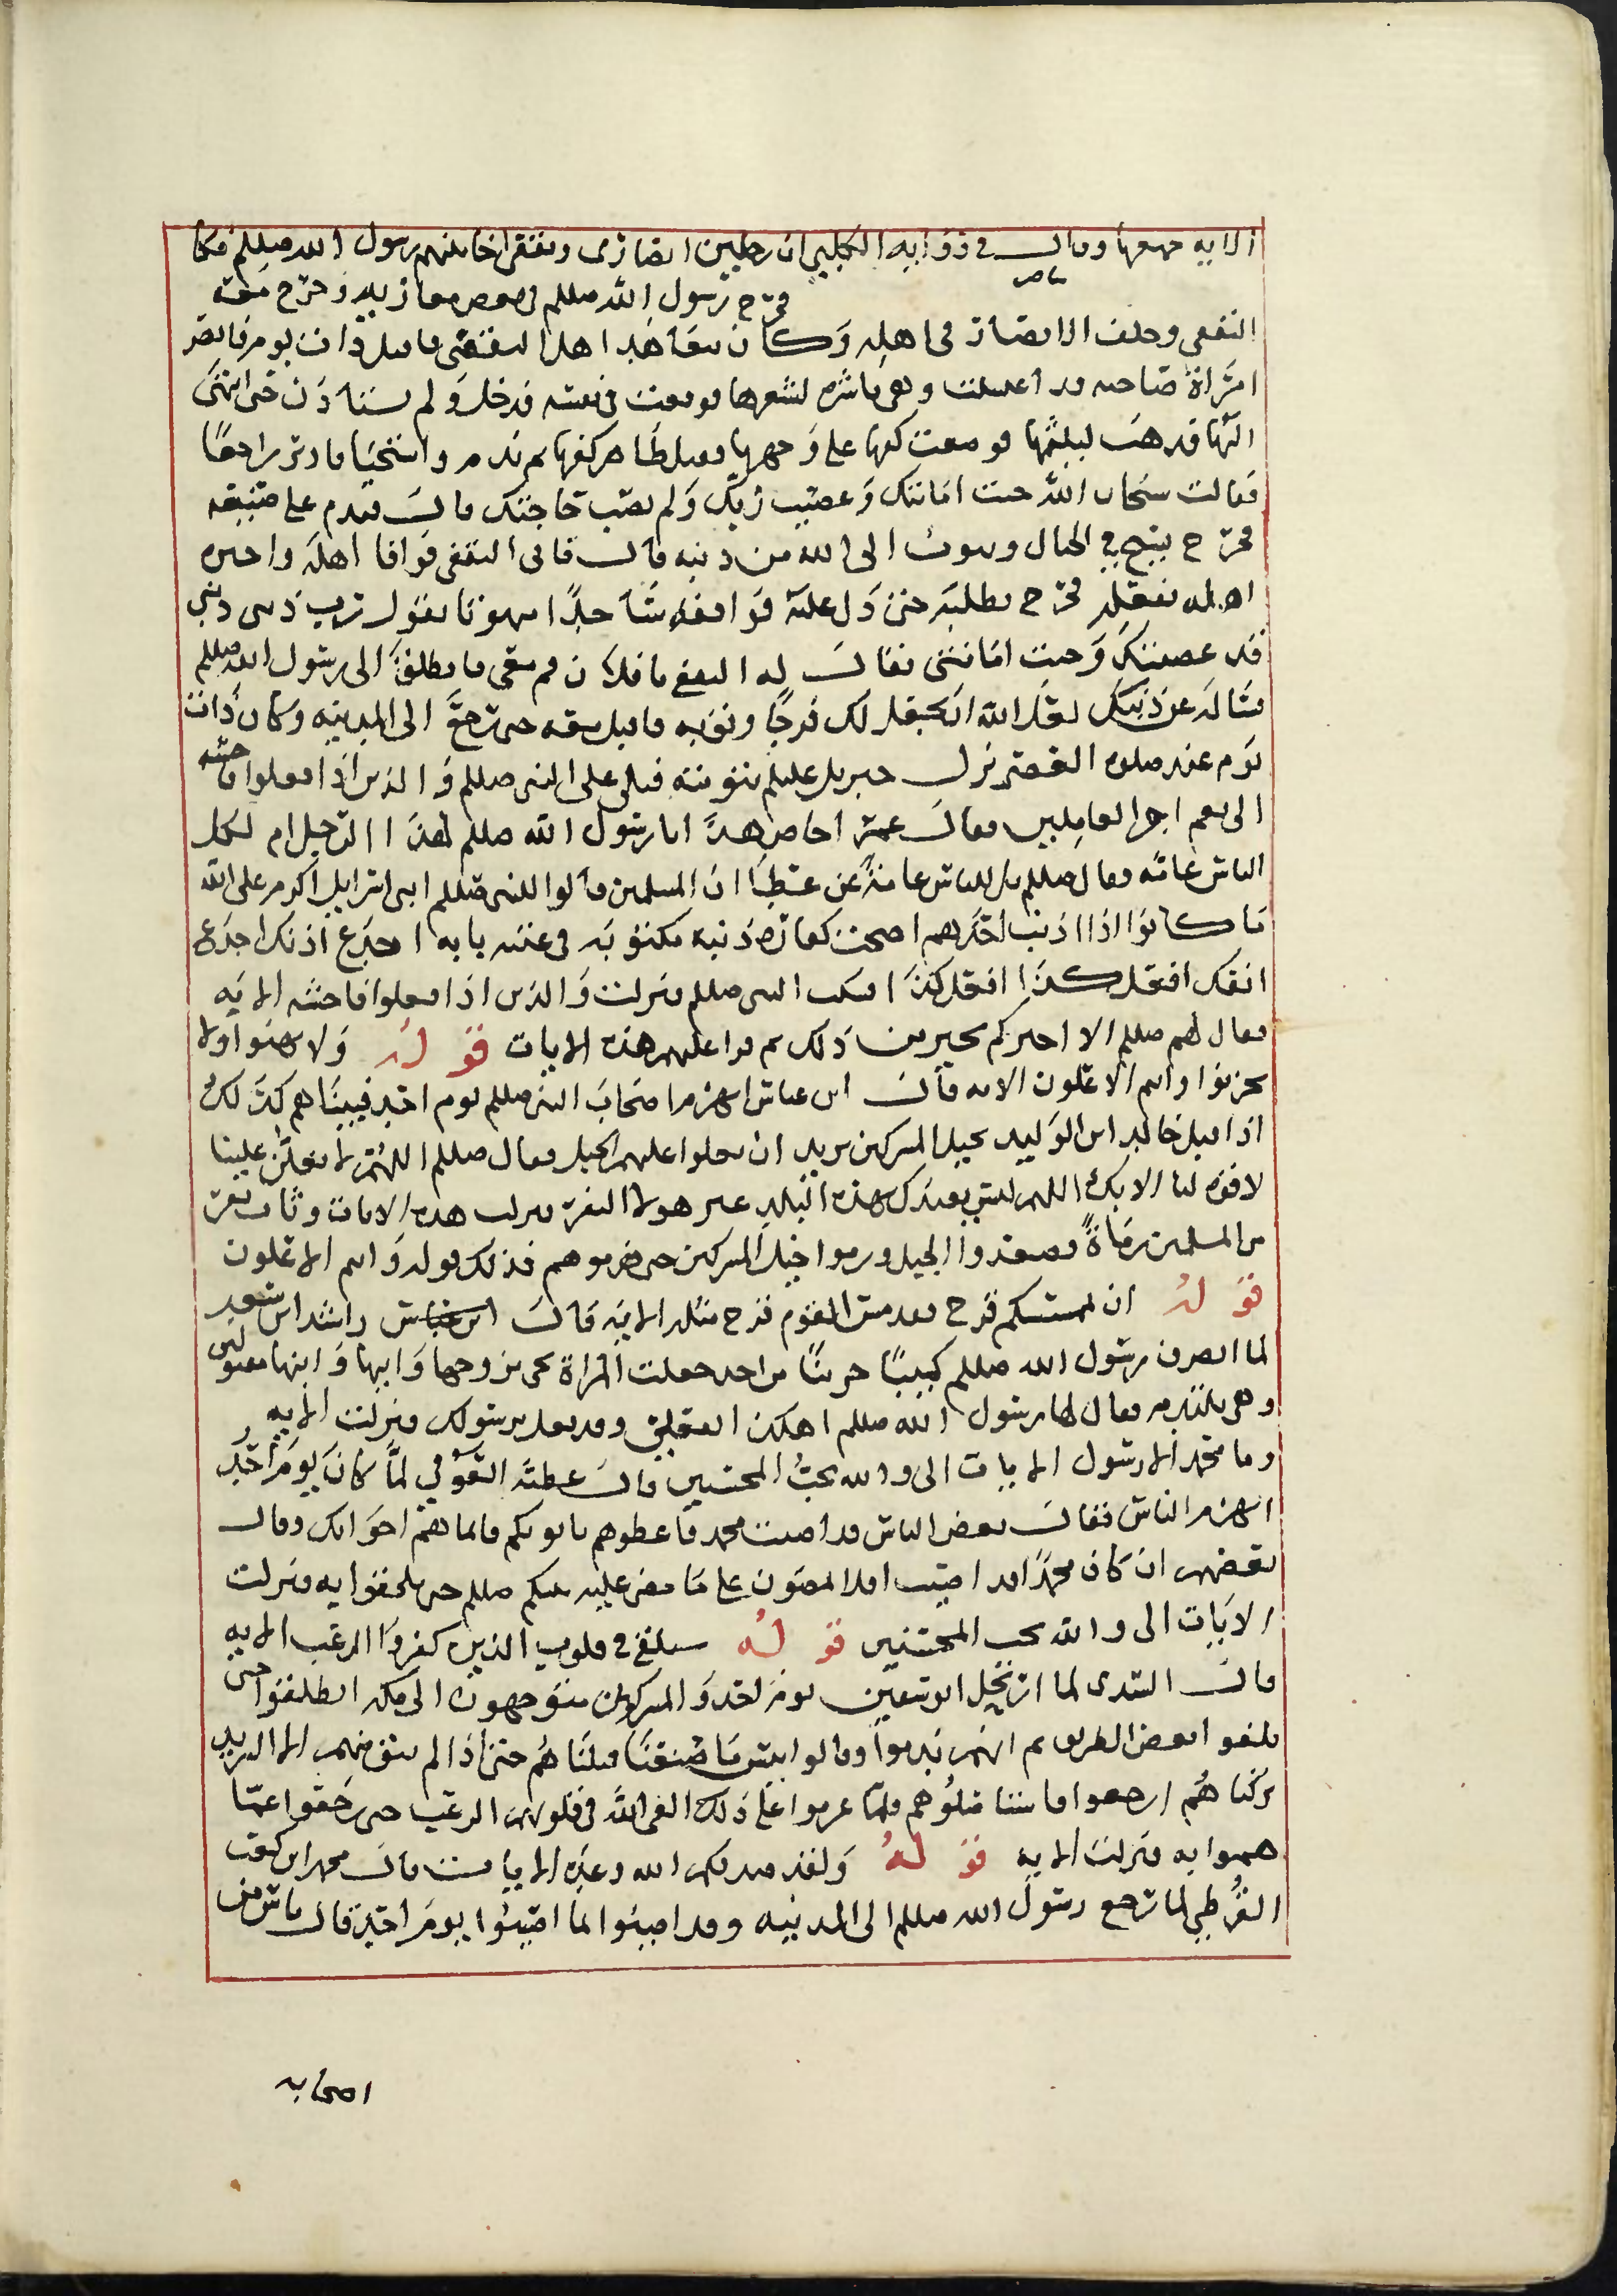 الايه جمعها وقال في روايه الكلبي ان رجلين انصاري وثقفي اخا بينهم رسول الله صللم فكانا
فخرج رسول الله صللم في بعض مغازيه وخرج معه
الثقفي وخلف الانصاري في اهله وكان يتعاهد اهل الثقفي فاقبل ذات يوم فابصر
امراة صاحبه قد اغتسلت وهي ناشره لشعرها فوقعت في نفسه فدخل ولم يستاذن حتى انتهى
اليها فذهب ليلثمها فوضعت كفها على وجهها فقبل ظاهر كفها ثم ندم واستحيا فادبر راجعا
فقالت سبحان الله خنت امانتك وعصيت ربك ولم تصب حاجتك قال فندم على صنيعه
فخرج يسيح في الجبال ويتوب الى الله من ذنبه قال فاتى الثقفي فوافا اهله واخبرته
اهله بفعله فخرج يطلبه حتى دل عليه فوافقه ساجدا وهو يقول رب ذنبي ذنبي
قد عصيتك وخنت امانتي فقال له الثقفي يا فلان قم معي فانطلق الى رسول الله صللم
فساله عن ذنبك لعل الله ان يجعل لك فرجا وتوبه فاقبل معه حتى رجع الى المدينه وكان ذات
يوم عند صلوة العصر نزل جبريل عليلم بتوبته فتلى على النبي صللم والذين اذا فعلوا فاحشه
الى نعم اجر العاملين فقال عمر اخاص هذا يا رسول الله صللم لهذا الرجل ام لكل
الناس عامه فقال صللم بل للناس عامة عن عطا ان المسلمين قالوا للنبي صللم ابني اسرائيل اكرم على الله
منا كانوا اذا اذنب احدهم اصبحت كفارة ذنبه مكتوبه في عتبه بابه اجدع اذنك اجدع
انفك افعل كذا افعل كذا فسكت النبي صللم فنزلت والذين اذا فعلوا فاحشه الايه
فقال لهم صللم الا اخبركم بخير من ذلك ثم قرا عليهم هذه الايات قوله ولا تهنوا ولا
تحزنوا وانتم الاعلون الايه قال ابن عباس انهزم اصحاب النبي صللم يوم احد فبينا هم كذلك
اذ اقبل خالد ابن الوليد بخيل المشركين يريد ان يعلوا عليهم الجبل فقال صللم اللهم لا يعلن علينا
لا قوة لنا الا بك اللهم ليس يعبدك بهذه البلد غير هولا النفر فنزلت هذه الايات وثاب نفر
من المسلمين رماة فصعدوا الجبل ورموا خيل المشركين حتى هزموهم فذلك قوله وانتم الاعلون
قوله ان يمسسكم قرح فقد مس القوم قرح مثله الايه قال راشد ابن سعد
لما انصرف رسول الله صللم كئيبا حزينا من احد جعلت المراة تجي بزوجها وابيها وابنها مقتولين
وهي تلتدم فقال لها رسول الله صللم اهكذا يفعل برسولك ونزلت الايه
وما محمد الا رسول الايات الى والله يحب المحسنين قال عطيه العوفي لما كان يوم احد
انهزم الناس فقال بعض الناس قد اصيب محمد فاعطوهم بايديكم فانما هم اخوانكم وقال
بعضهم ان كان محمدا قد اصيب افلا تمضون على ما مضى عليه نبيكم صللم حتى تلحقوا به فنزلت
الايات الى والله يحب المحسنين قوله سنلقي في قلوب الذين كفروا الرعب الايه
قال السدي لما ارتحل ابو سفين يوم احد والمشركين متوجهون الى مكه انطلقوا حتى
بلغوا بعض الطريق ثم انهم ندموا وقالوا بئس ما صنعنا قتلناهم حتى اذا لم يبق منهم الا الشريد
تركناهم ارجعوا فاستاصلوهم فلما عزموا على ذلك القى الله في قلوبهم الرعب حتى رجعوا عما
هموا به فنزلت الايه قوله ولقد صدقكم الله وعده الايات قال محمد ابن كعب
القرظي لما رجع رسول الله صللم الى المدينه وقد اصيبوا لما اصيبوا يوم احد قال ناس من
اصحابه